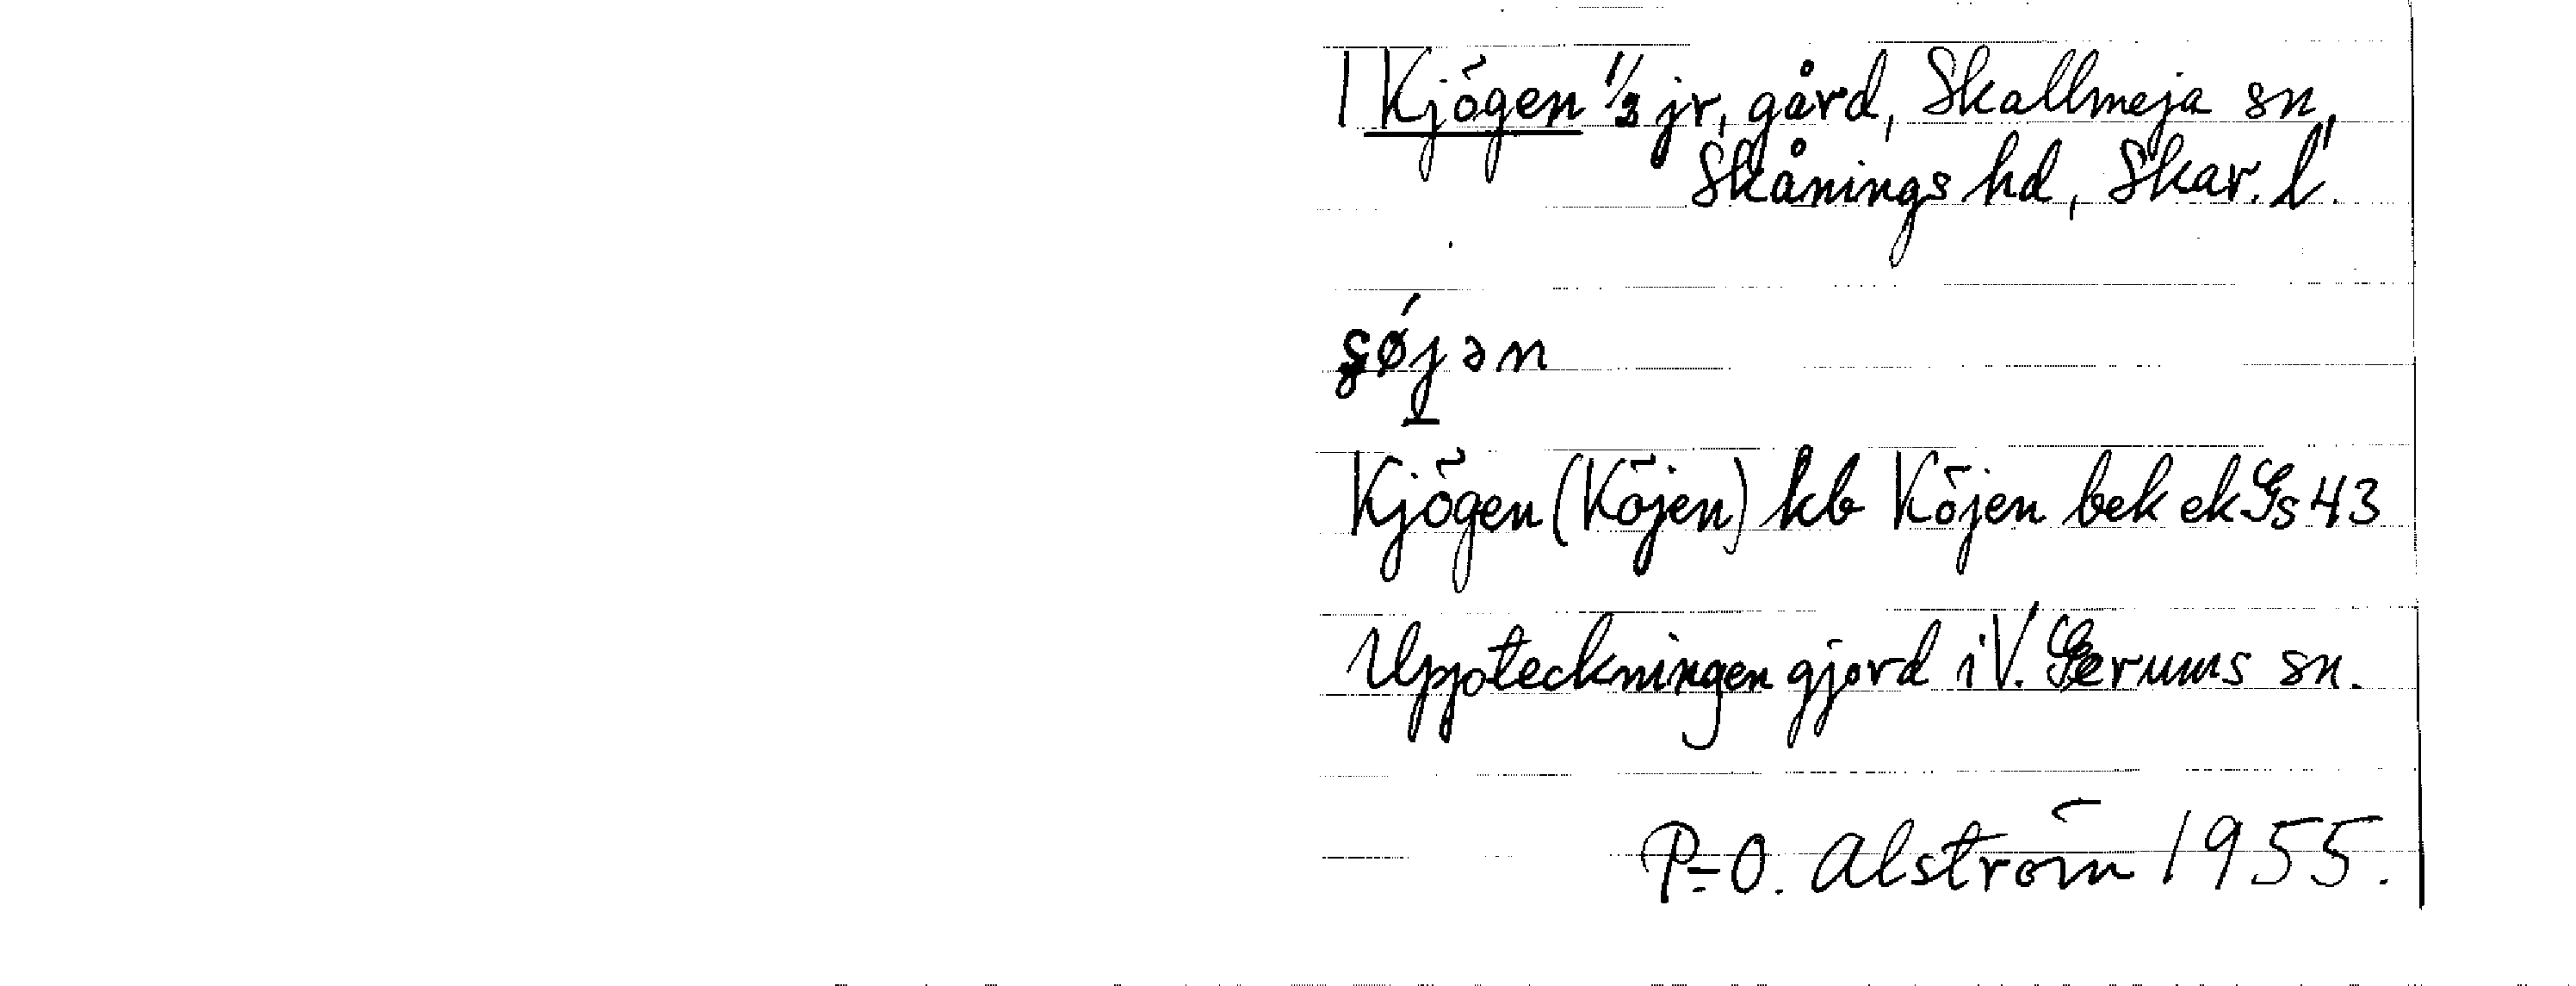 1 Kjögen 1/3 jr, gård, Skallmeja sn,
Skånings hd, Skar. l.
ʂǿjən
Kjögen (Köjen) kb Köjen bek ek Gs 43
Uppteckningen gjord i V. Gerums sn.
P.-O. Alström 1955.